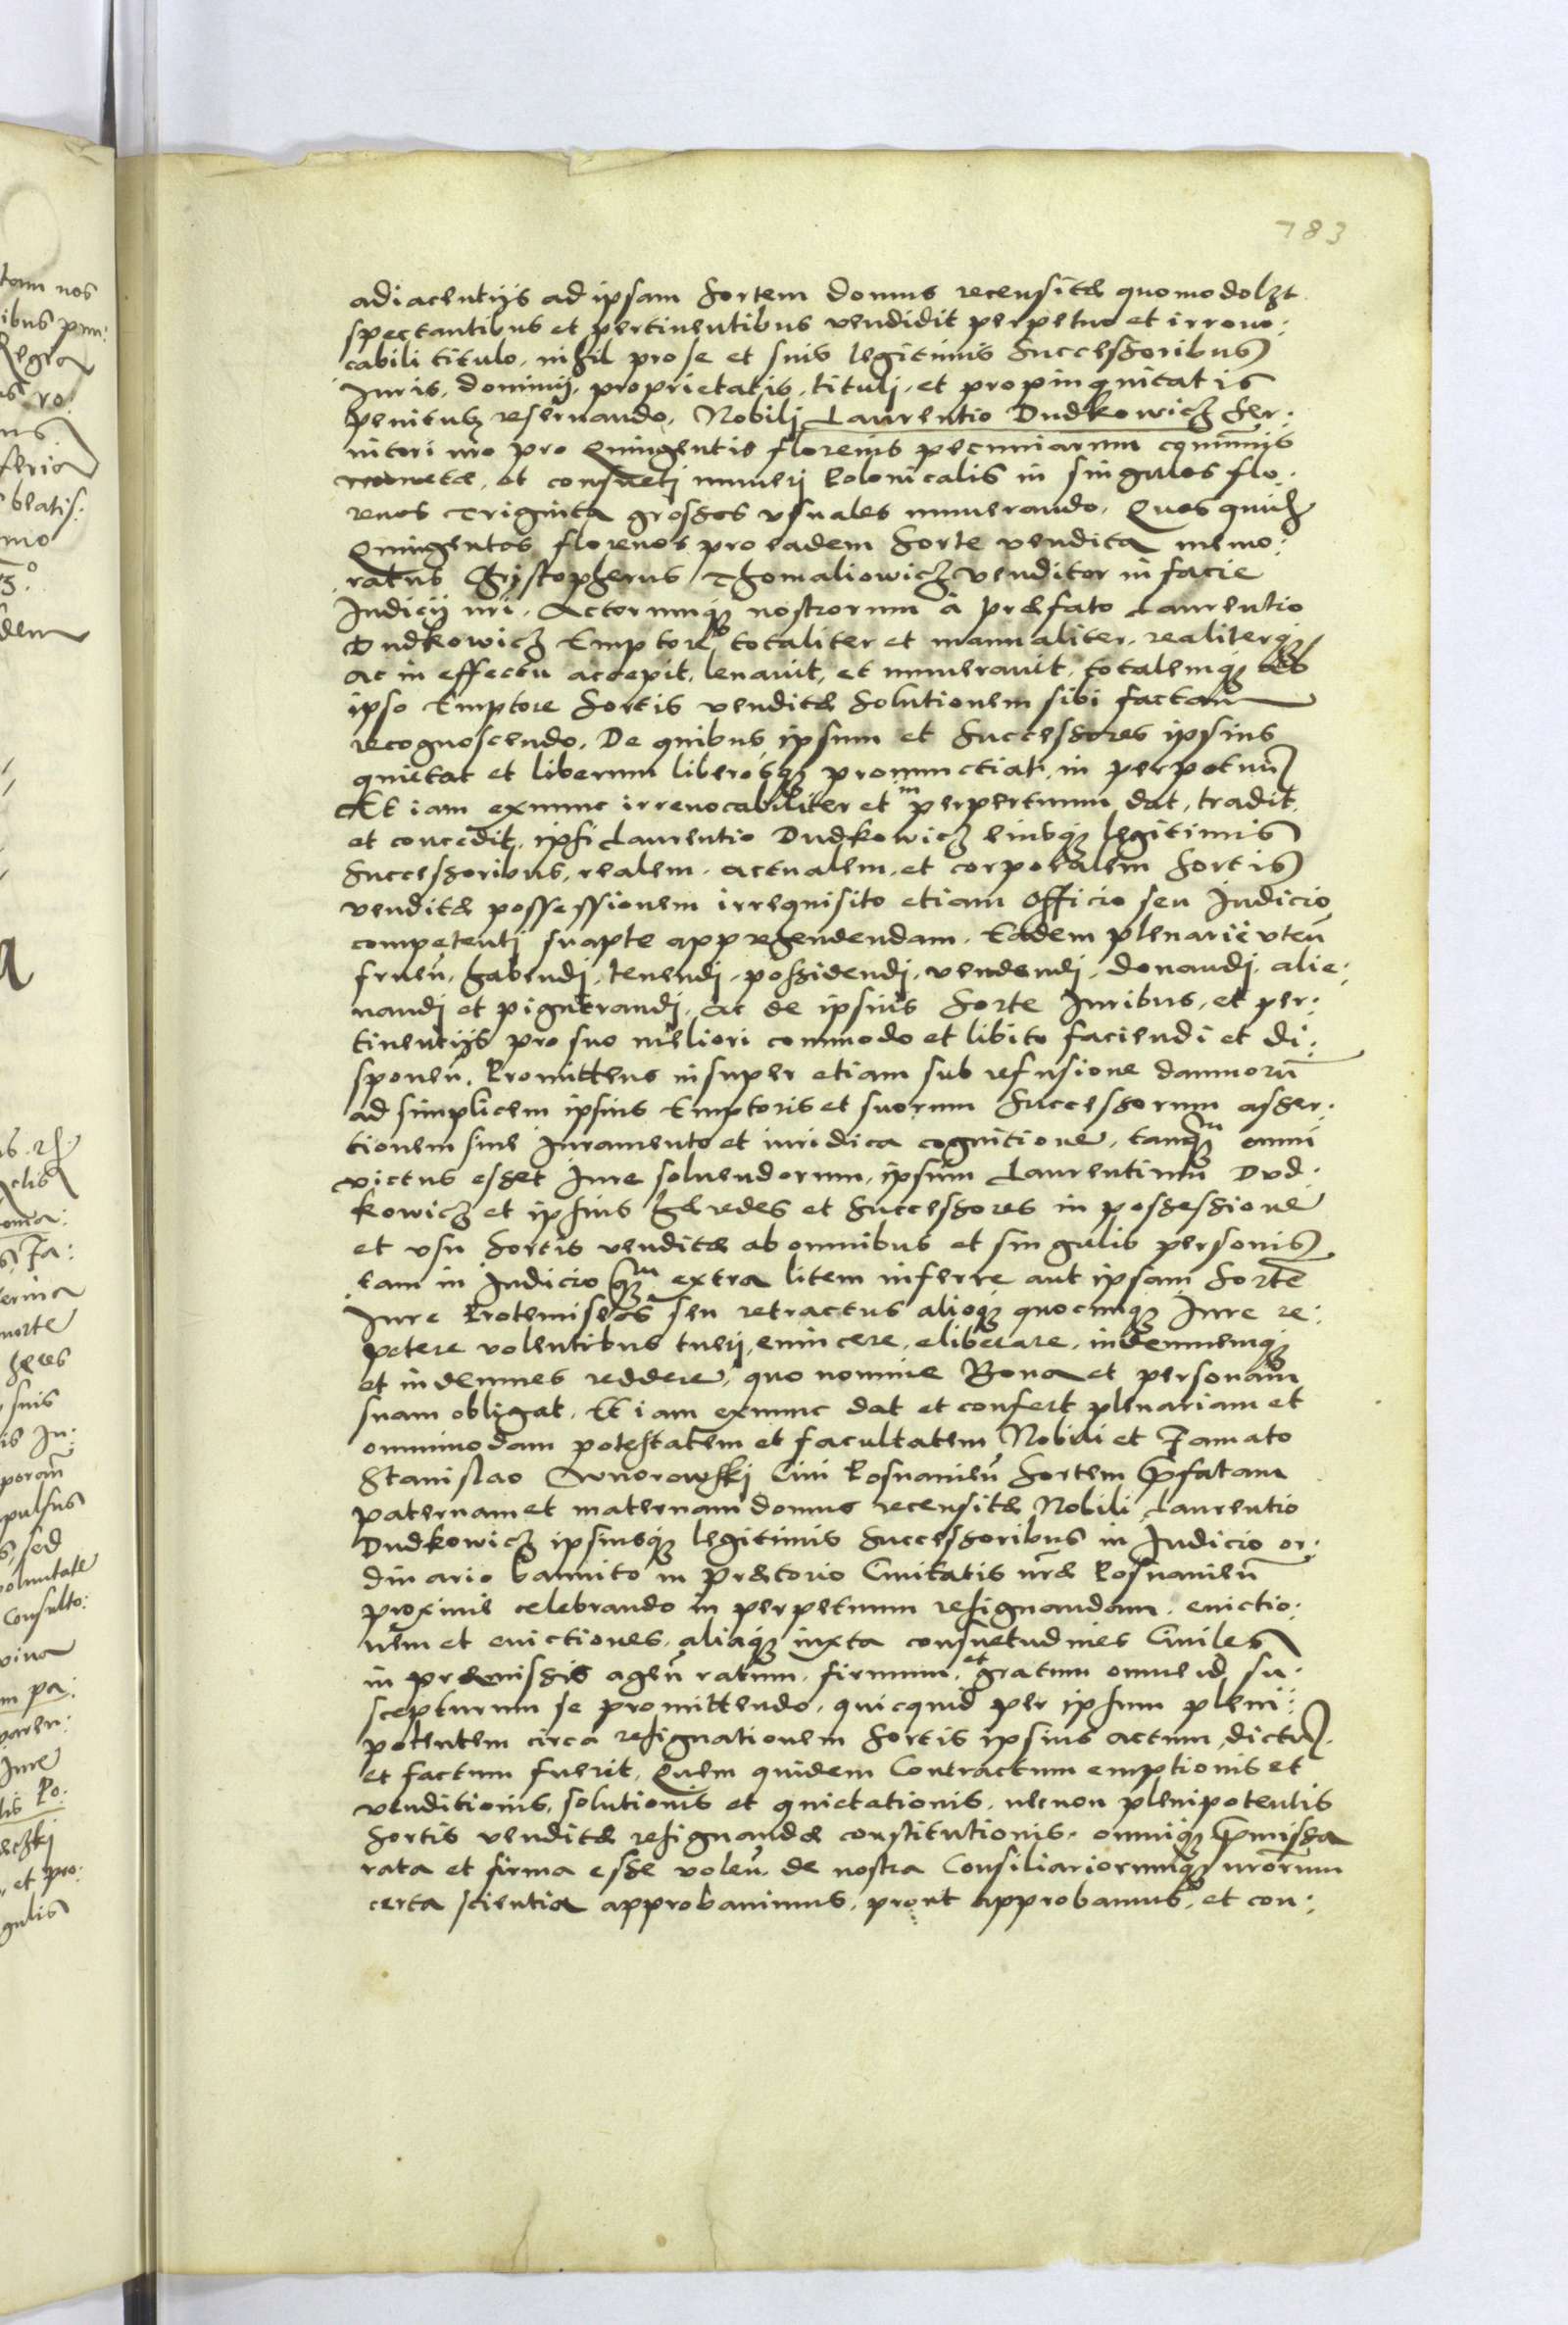 783
adiacentijs ad ipsam Sortem domus recensitæ quomodolƷt
spectantibus et pertinentibus vendidit perpetuo et irreuo:
cabili titulo, nihil pro se et suis legitimis Successoribus
Iuris, dominij, proprietatis, tituli, et propinquitatis
penitus reseruando, Nobilj Laurentio Dudkowicz Ser:
uitori nro pro Quingentis florenis pecuniarum cõmunis
monetæ, et consuetj numerj Polonicalis in singulos flo:
renos Triginta grossos vsuales numerando, Quos quidẽ
Quingentos florenos pro eadem Sorte vendita memo:
ratus Christopherus Thomaliowicz venditor in facie
Iudicij nri, Actorumqȝ nostrorum à præfato Laurentio
Dudkowicz Emptore totaliter et manualiter, realiterqȝ
ac in effectu accepit, leuauit, et numerauit, totalemqȝ ab
ipso Emptore Sortis venditæ Solutionem sibi factam
recognoscendo, De quibus ipsum et Successores ipsius
quietat et liberum liberosqȝ pronunctiat, in perpetuũ
Et iam exnunc irreuocabiliter et in perpertuum dat, tradit,
et concedit, ipsi Laurentio Dudkowicz eiusqȝ legitimis
Successoribus, realem, actualem, et corporalem Sortis
venditæ possessionem irrequisito etiam Officio seu Iudicio
competenti suapte apprehendendam, Eadem plenariè vteñ
frueñ, habendj, tenendj, possidendj, vendendj, donandj, alie:
nandj et pignerandj, ac de ipsius Sorte Iuribus, et per:
tinentijs pro suo meliori commodo et libito faciendi et di:
sponeñ, Promittens insuper etiam sub refusione damnorũ
ad simplicem ipsius Emptoris et suorum Successorum asser:
tionem sine Iuramento et iuridica cognitione, tanqȝm omni
victus esset Iure soluendorum, ipsum Laurentium Dud:
kowicz et ipsius hæredes et Successores in possessione
et vsu Sortis venditæ ab omnibus et singulis personis
tam in Iudicio qȝm extra litem inferre aut ipsam Sortẽ
Iure Protemiseos seu retractus alioqȝ quocunqȝ Iure re:
petere volentibus tuerj, euincere, eliberare, indemnemqȝ
et indemnes reddere, quo nomine Bona et personam
suam obligat, Et iam exnunc dat et confert plenariam et
omnimodam potestatem et facultatem Nobili et Famato
Stanislao Wnorowski Ciui Posnanieñ Sortem p̃fatam
paternam et maternam domus recensitæ Nobili Laurentio
Dudkowicz ipsiusqȝ legitimis Successoribus in Iudicio or:
dinario bannito in Prætorio Ciuitatis nræ Posnanieñ
proximè celebrando in perpetuum resignandam, euictio:
nem et euictiones, aliaqȝ iuxta consuetudines Ciuiles
in præmissis ageñ ratum, firmum, et gratum omne id su:
scepturum se promittendo, quicquid per ipsum pleni:
potentem circa resignationem Sortis ipsius actum, dictũ
et factum fuerit, Quem quidem Contractum emptionis et
venditionis, solutionis et quietationis, necnon plenipotentis
Sortis venditæ resignandæ constitutionis, omniaqȝ p̃missa
rata et firma esse voleñ de nostra Consiliariorumqȝ nrorum
certa scientia approbauimus, prout approbamus, et con: